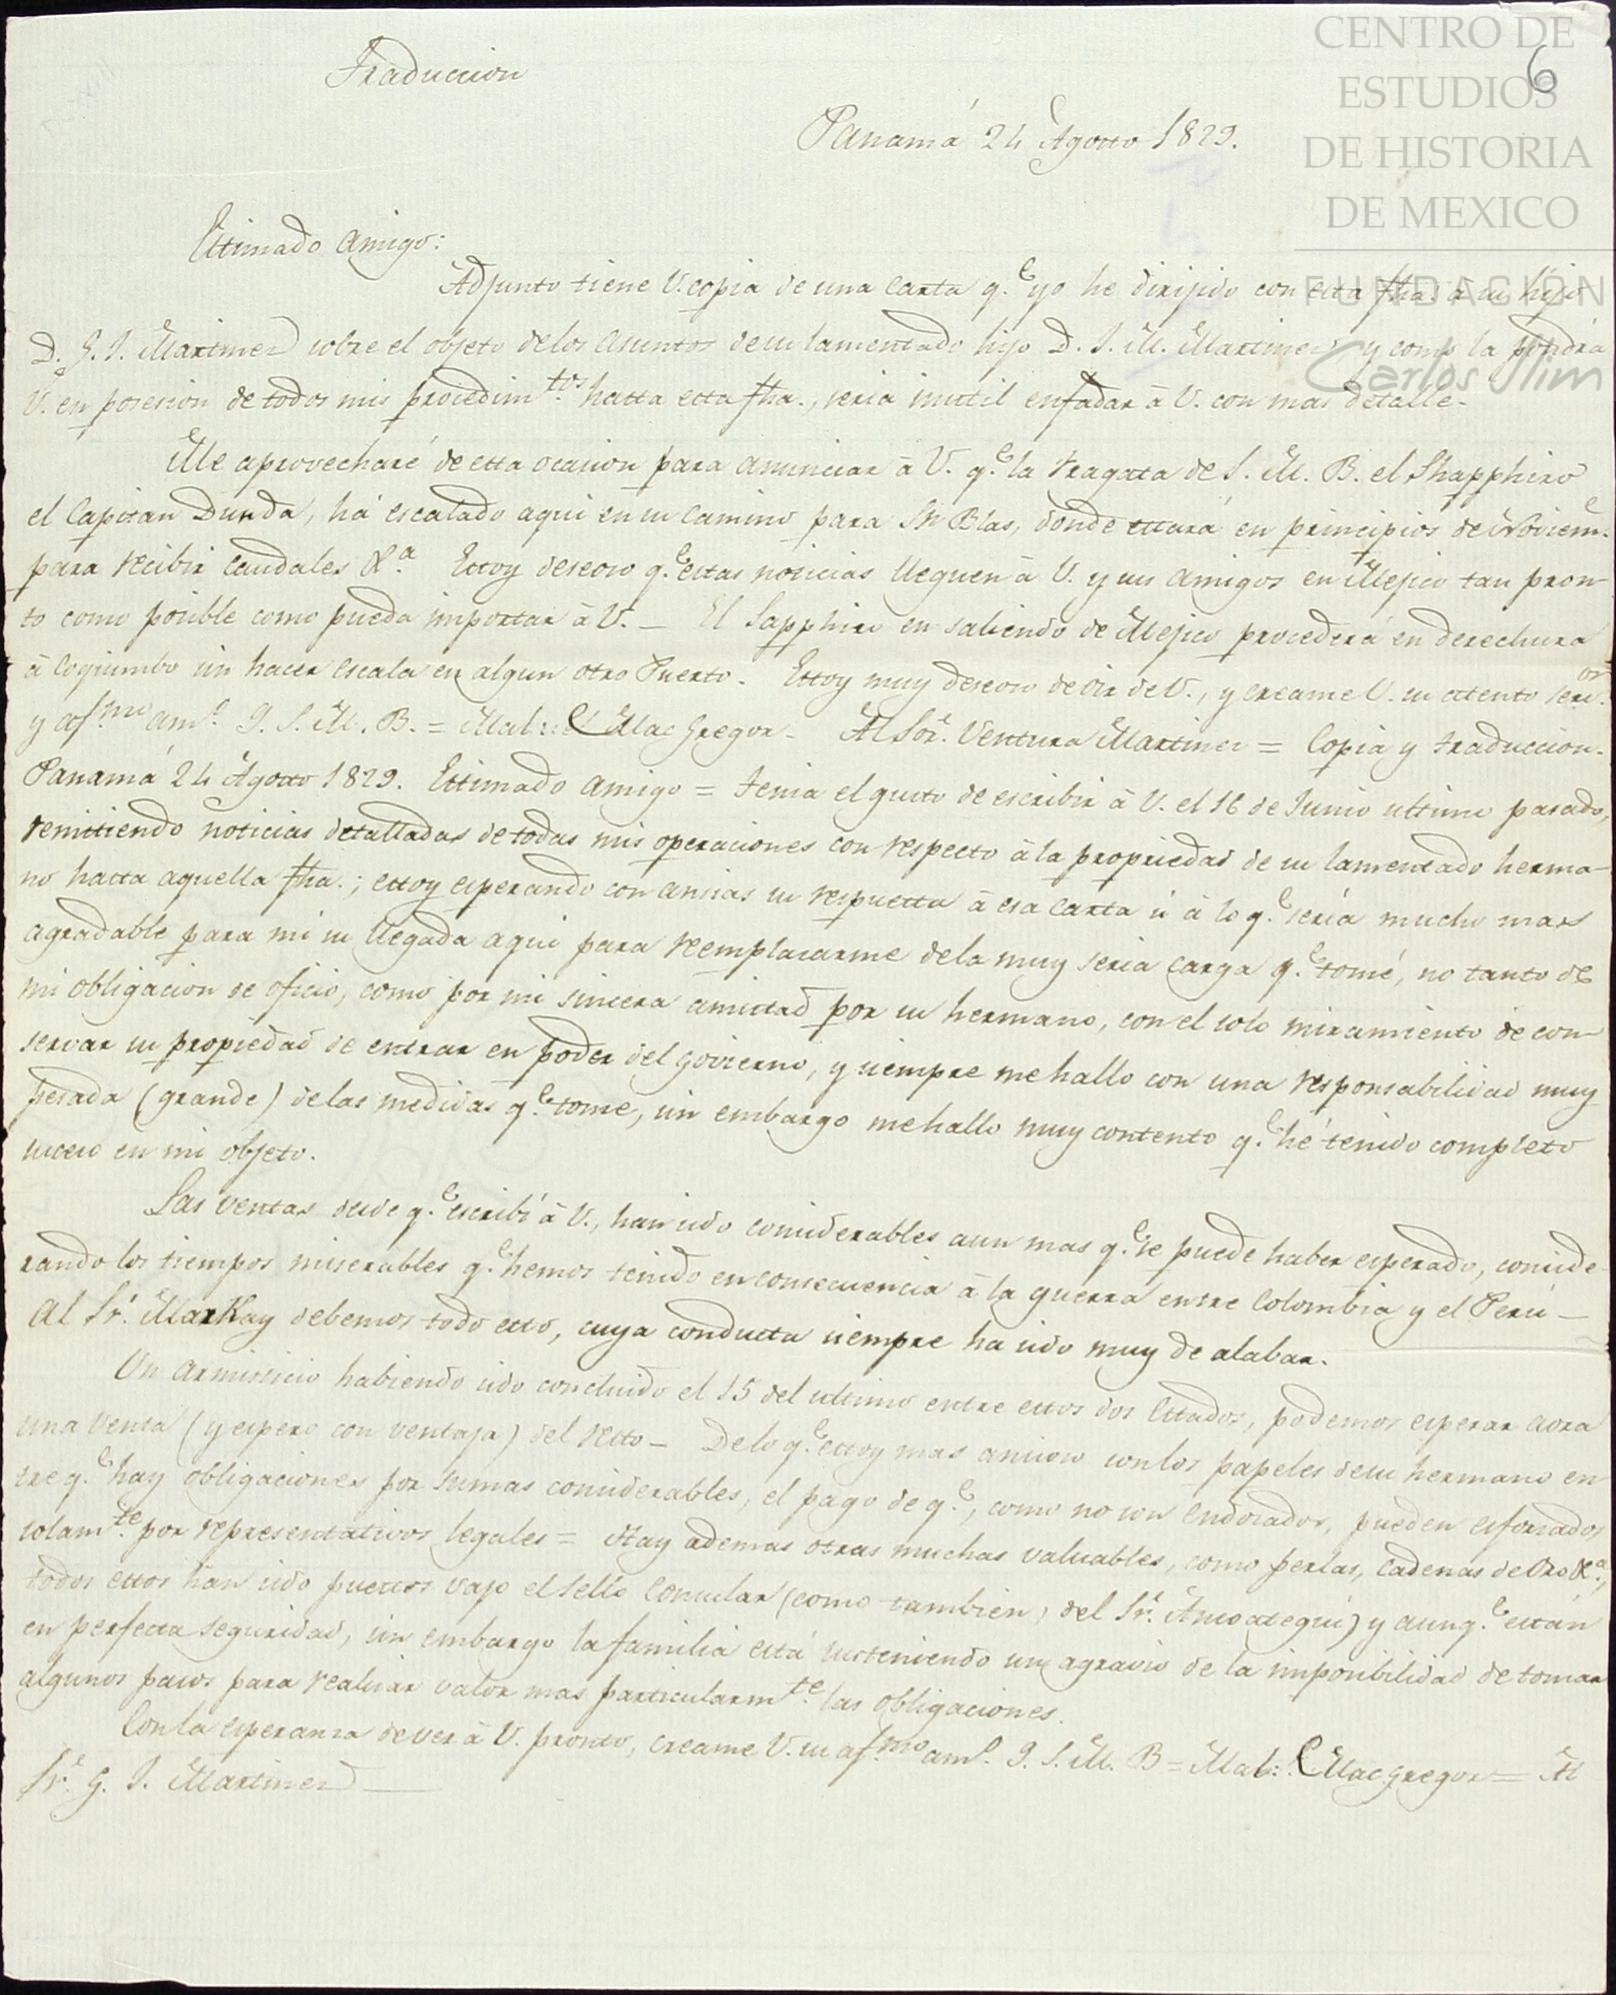 CENTRO DE
ESTUDIOS
DE HISTORIA
DE MEXICO
FUNDACIÓN
Carlos Slim
6
Traduccion
Panamá 24 Agosto 1829.
Estimado Amigo:
Adjunto tiene V. copia de una Carta q.e yo he dirijido con esta fha. á su hijo
D. G. I. Martinez sobre el objeto de los asuntos de su lamentado hijo D. I. M. Martinez y como la pondrá
V. en posesion de todos mis procedim.tos hasta esta fha., seria inutil enfadar á V. con mas detalle.
Me aprovecharé de esta ocasion para anunciar á V. q.e la Fragata de S. M. B. el Shapphiro
el Capitan Dunda, há escalado aqui en su camino para Sn Blas, donde estará en principios de Noviem.e
para recibir Caudales &.a Estoy deseoso q.e estas noticias lleguen á V. y sus Amigos en Mejico tan pron-
to como posible como pueda importar á V. — El Sapphiro en saliendo de Mejico procederá en derechura
á Coquimbo sin hacer escala en algun otro Puerto. Estoy muy deseoso de oir de V., y creame V. su atento serv.or
y af.mo am.o Q. S. M. B. = Mal: Mac Gregor - Al Sor. Ventura Martinez = Copia y traduccion.
Panamá 24 Agosto 1829. Estimado Amigo = Tenia el gusto de escribir á V. el 16 de Junio ultimo pasado,
remitiendo noticias detalladas de todas mis operaciones con respecto á la propriedad de su lamentado herma-
no hasta aquella fha.; estoy esperando con ansias su respuesta á esa carta ú á lo q.e sería mucho mas
agradable para mi su llegada aqui para reemplazarme de la muy seria carga q.e tomé, no tanto de
mi obligacion de oficio, como por mi sincera amistad por su hermano, con el solo miramiento de con-
servar su propiedad de entrar en poder del govierno, y siempre me hallo con una responsabilidad muy
pesada (grande) de las medidas q.e tome, sin embargo me hallo muy contento q.e hé tenido completo
suceso en mi objeto.
Las ventas desde q.e escribí á V., han sido considerables aun mas q.e se puede haber esperado, conside-
rando los tiempos miserables q.e hemos tenido en consecuencia á la guerra entre Colombia y el Perú —
Al Sr. MarKay debemos todo esto, cuya conducta siempre ha sido muy de alabar.
Un armisticio habiendo sido concluido el 15 del ultimo entre estos dos Estados, podemos esperar aora
una venta (y espero con ventaja) del resto — De lo q.e estoy mas ansioso son los papeles de su hermano en-
tre q.e hay obligaciones por sumas considerables, el pago de q.e, como no son endosados, pueden esforzados
solam.te por representativos legales = Hay ademas otras muchas valuables, como perlas, cadenas de Oro &.a,
todos estos han sido puestos vajo el sello Consular (como tambien, del Sr. Amoategui) y aunq.e están
en perfecta seguridad, sin embargo la familia está sosteniendo un agravio de la imposibilidad de tomar
algunos pasos para realizar valor mas particularm.te las obligaciones.
Con la esperanza de ver á V. pronto, creame V. su af.mo am.o Q. S. M. B = Mal: Mac Gregor = Al
Sr. G. I. Martinez —